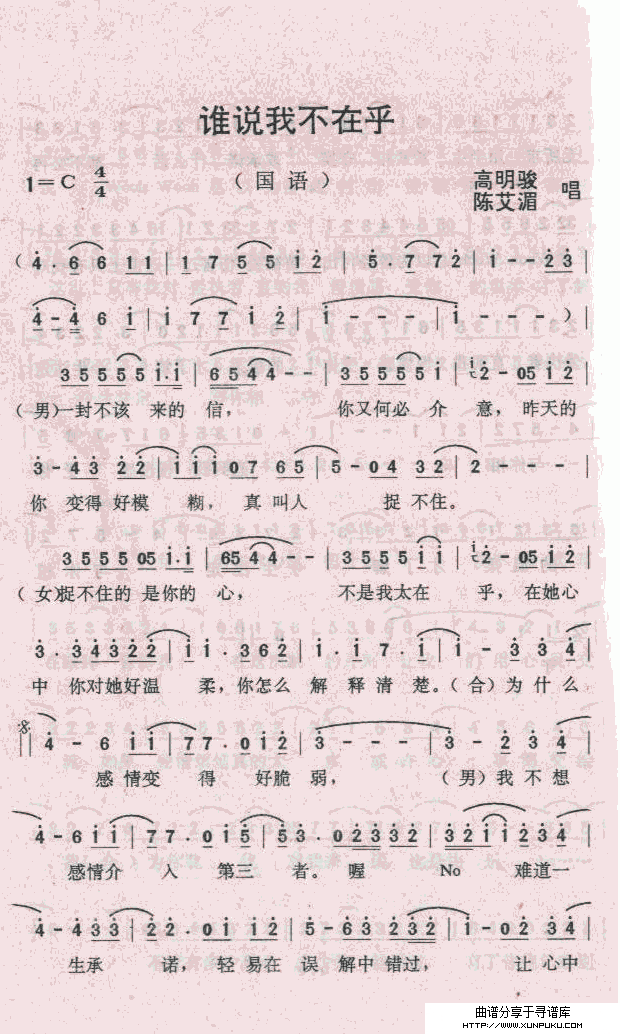 谁说我不在乎
1=C 4/4 （国语） 高明骏 陈艾湄 唱
（4·6 6 6 1 1 | 1 7 5 5 1 2 | 5·7 7 2 | 1 - - 2 3
4 - 4 6 1 | 1 7 7 1 2 | 1 - - - | 1 - - - ）|
3 5 5 5 5 1·1 | 6 5 4 4 - - | 3 5 5 5 5 1 | 2 - 0 5 1 2
（男）一封不该 来的 信， 你又何必 介 意，昨天的
3 - 4 3 2 2 | 1 1 1 0 7 6 5 | 5 - 0 4 3 2 | 2 - - -
你 变得 好模 糊，真叫人 捉 不住。
3 5 5 5 0 5 1·1 | 6 5 4 4 - - | 3 5 5 5 1 1 | 2 - 0 5 1 2
（女）捉不住的 是你的 心， 不是我太在 乎，在她心
3·3 4 3 2 2 | 1 1·3 6 2 | 1·1 7·1 | 1 - 3 3 4
中 你对她好温 柔，你怎么 解 释清 楚。（合）为什么
4 - 6 1 1 | 7 7·0 1 2 | 3 - - - | 3 - 2 3 4
感 情变 得 好脆 弱， （男）我 不想
4 - 6 1 1 | 7 7·0 1 5 | 5 3·0 2 3 3 2 | 3 2 1 1 2 3 4
感情介 入 第三 者。喔 No 难道一
4 - 4 3 3 | 2 2·0 1 1 2 | 5 - 6 3 3 2 3 2 | 1 - 0 2 3 4
生承 诺，轻 易在 误 解中 错过， 让 心中
曲谱分享于寻谱库
HTTP://WWW.XUNPUKU.COM